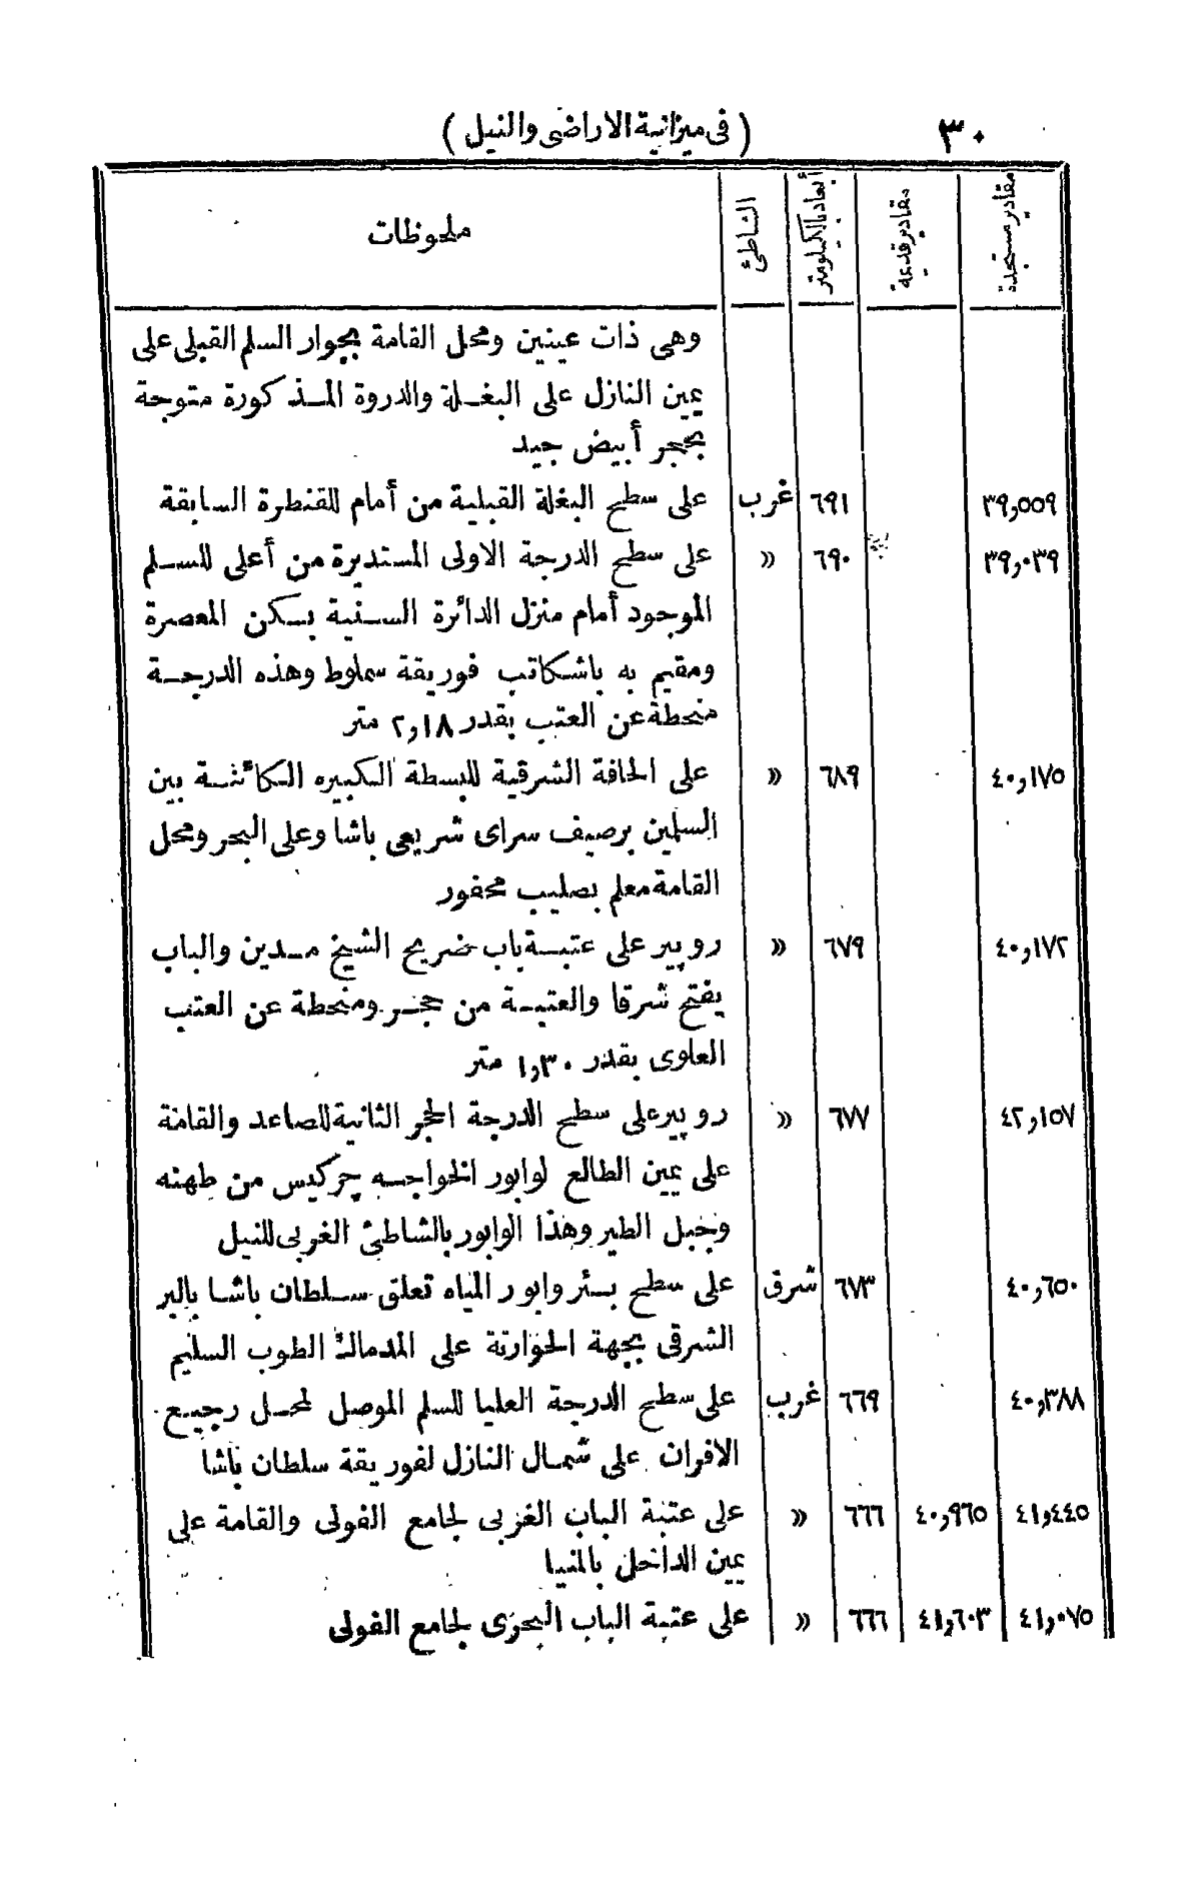 ٣٠
( فى ميزانية الاراضى والنيل )
مقادير مستجدة
مقادير قديمة
أبعاد بالكيلومتر
الشاطئ
ملحوظات
وهى ذات عينين ومحل القامة بجوار السلم القبلى على
يمين النازل على البغلة والدروة المذكورة متوجة
بحجر أبيض جيد
٣٩,٥٥٩ ٦٩١ غرب على سطح البغلة القبلية من أمام للقنطرة السابقة
٣٩,٠٣٩ ٦٩٠ » على سطح الدرجة الاولى المستديرة من أعلى للسلم
الموجود أمام منزل الدائرة السنية بسكن المعصرة
ومقيم به باشكاتب فوريقة سملوط وهذه الدرجة
منحطة عن العتب بقدر ٢,١٨ متر
٤٠,١٧٥ ٦٨٩ » على الحافة الشرقية للبسطة الكبيره الكائنة بين
السلمين برصيف سراى شريعى باشا وعلى البحر ومحل
القامة معلم بصليب محفور
٤٠,١٧٢ ٦٧٩ » روبير على عتبة باب ضريح الشيخ مدين والباب
يفتح شرقا والعتبة من حجر ومنحطة عن العتب
العلوى بقدر ١,٣٠ متر
٤٢,١٥٧ ٦٧٧ » روبير على سطح الدرجة الحجر الثانية للصاعد والقامة
على يمين الطالع لوابور الخواجه جركيس من طهنه
وجبل الطير وهذا الوابور بالشاطئ الغربى للنيل
٤٠,٦٥٠ ٦٧٣ شرق على سطح بئر وابور المياه تعلق سلطان باشا بالبر
الشرقى بجهة الحوارتة على المدماك الطوب السليم
٤٠,٣٨٨ ٦٦٩ غرب على سطح الدرجة العليا للسلم الموصل لمحل رجيع
الافران على شمال النازل لفوريقة سلطان باشا
٤١,٤٤٥ ٤٠,٩٦٥ ٦٦٦ » على عتبة الباب الغربى لجامع الفولى والقامة على
يمين الداخل بالمنيا
٤١,٠٧٥ ٤١,٦٠٣ ٦٦٦ » على عتبة الباب البحرى لجامع الفولى